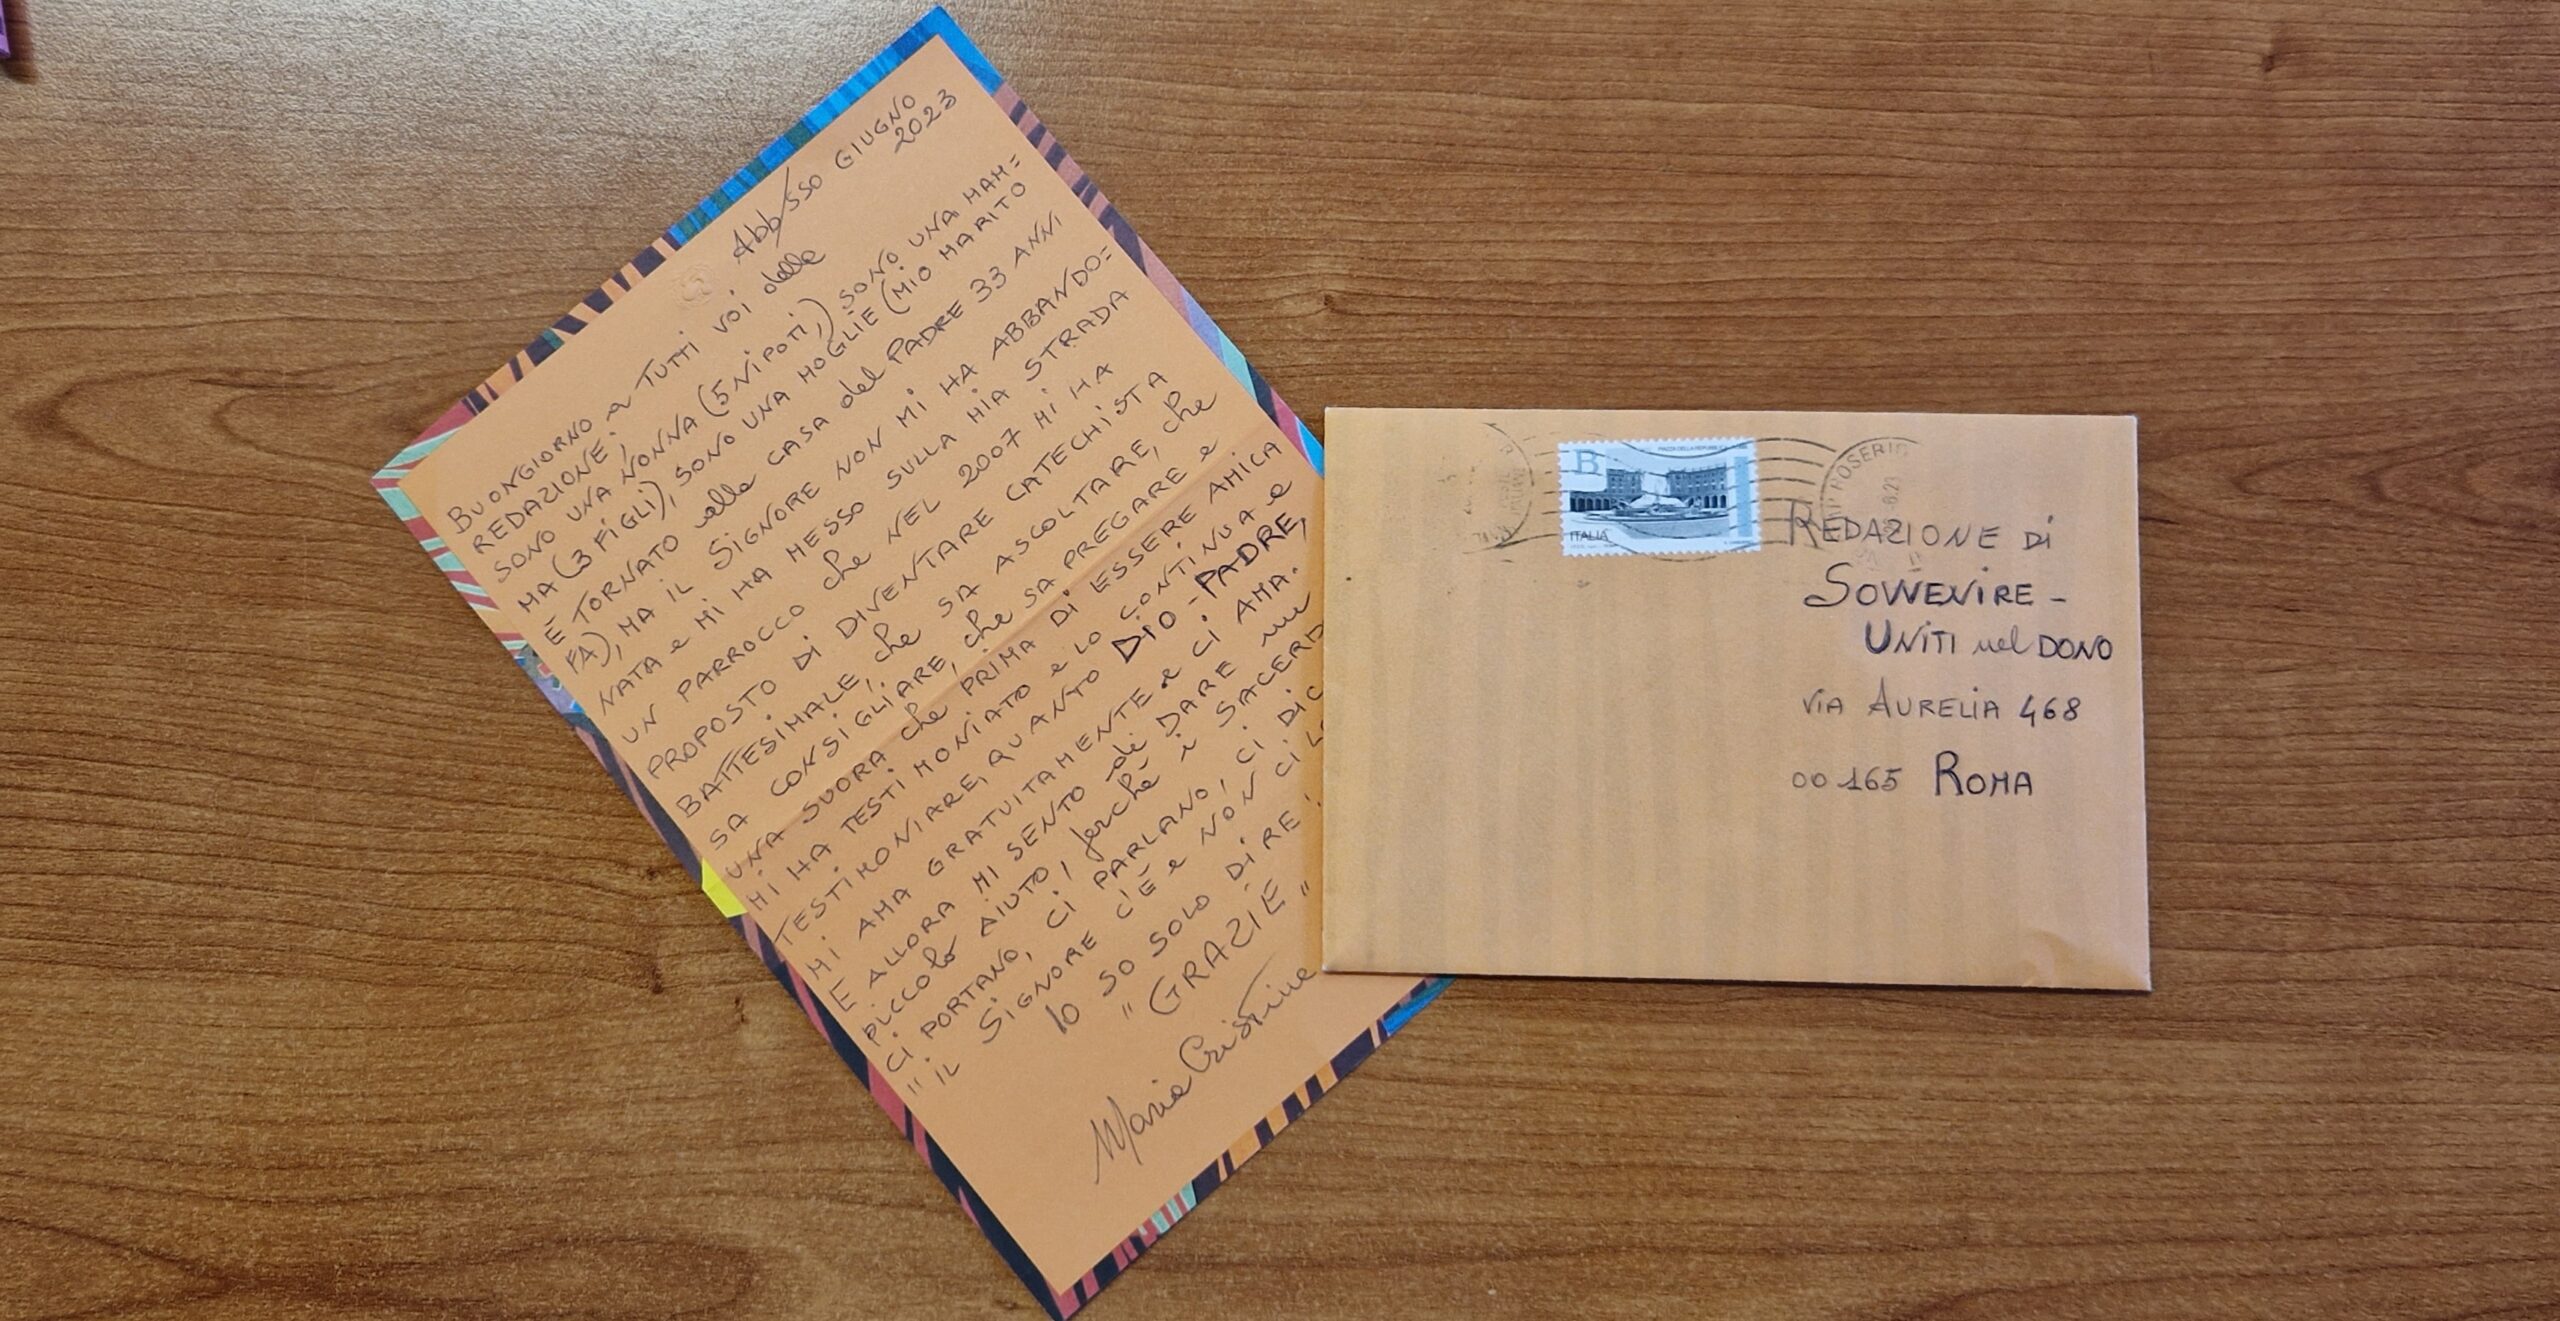 Abb/sso GIUGNO
2023
BUONGIORNO a TUTTI VOI della
REDAZIONE;
SONO UNA NONNA (5 NIPOTI,) SONO UNA MAM=
MA (3 FIGLI), SONO UNA MOGLIE (MIO MARITO
È TORNATO alla CASA del PADRE 33 ANNI
FA), MA IL SIGNORE NON MI HA ABBANDO=
NATA e MI HA MESSO SULLA MIA STRADA
UN PARROCO che NEL 2007 MI HA
PROPOSTO DI DIVENTARE CATECHISTA
BATTESIMALE, che SA ASCOLTARE, che
SA CONSIGLIARE, che SA PREGARE e
UNA SUORA che PRIMA DI ESSERE AMICA
MI HA TESTIMONIATO e LO CONTINUA e
TESTIMONIARE, QUANTO DIO-PADRE,
MI AMA GRATUITAMENTE e CI AMA.
E ALLORA MI SENTO di DARE un
piccolo AIUTO, perché i SACERD
CI PORTANO, CI PARLANO, CI DIC
"IL SIGNORE C'È e NON CI
IO SO SOLO DIRE:
"GRAZIE"
Maria Cristina
PIAZZA DELLA REPUBBLICA
B
ITALIA
REDAZIONE di
SOVVENIRE -
UNITI nel DONO
VIA AURELIA 468
00165 ROMA